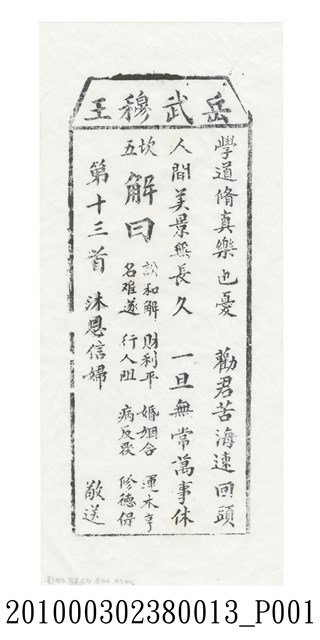 岳武穆王
學道脩真樂也憂 勸君苦海速回頭
人間美景無長久 一旦無常萬事休
坎五 解曰
訟和解 財利平 婚姻合 運未亨
名难遂 行人阻 病反覆 修德保
第十三首 沐恩信婦 敬送
201000302380013_P001